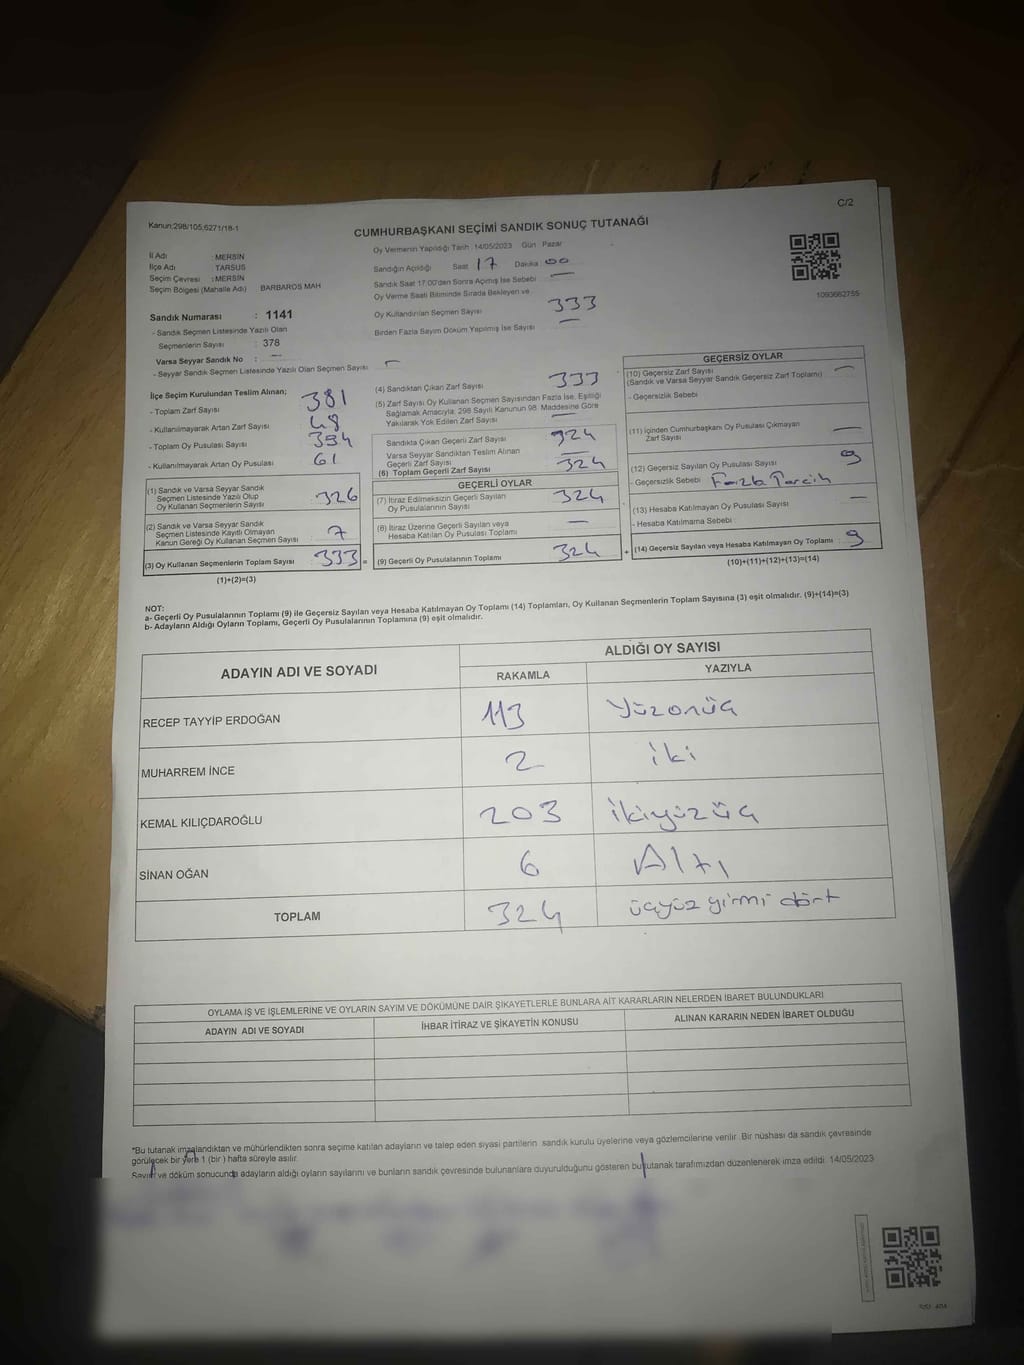 C/2
Kanun:298/105,6271/18-1
CUMHURBAŞKANI SEÇİMİ SANDIK SONUÇ TUTANAĞI
Oy Vermenin Yapıldığı Tarih : 14/05/2023 Gün : Pazar
İl Adı : MERSİN
İlçe Adı : TARSUS
Seçim Çevresi : MERSİN
Seçim Bölgesi (Mahalle Adı) BARBAROS MAH
Sandığın Açıldığı Saat : 17 Dakika : 00
Sandık Saat 17.00'den Sonra Açılmış İse Sebebi : —
Oy Verme Saati Bitiminde Sırada Bekleyen ve
Oy Kullandırılan Seçmen Sayısı 333
Birden Fazla Sayım Döküm Yapılmış İse Sayısı —
1093662755
Sandık Numarası : 1141
- Sandık Seçmen Listesinde Yazılı Olan
Seçmenlerin Sayısı : 378
Varsa Seyyar Sandık No : —
- Seyyar Sandık Seçmen Listesinde Yazılı Olan Seçmen Sayısı : –
İlçe Seçim Kurulundan Teslim Alınan;
- Toplam Zarf Sayısı 381
- Kullanılmayarak Artan Zarf Sayısı 48
- Toplam Oy Pusulası Sayısı 394
- Kullanılmayarak Artan Oy Pusulası 61
(1) Sandık ve Varsa Seyyar Sandık
Seçmen Listesinde Yazılı Olup
Oy Kullanan Seçmenlerin Sayısı 326
(2) Sandık ve Varsa Seyyar Sandık
Seçmen Listesinde Kayıtlı Olmayan
Kanun Gereği Oy Kullanan Seçmen Sayısı 7
(3) Oy Kullanan Seçmenlerin Toplam Sayısı 333 =
(1)+(2)=(3)
(4) Sandıktan Çıkan Zarf Sayısı 333
(5) Zarf Sayısı Oy Kullanan Seçmen Sayısından Fazla İse, Eşitliği
Sağlamak Amacıyla, 298 Sayılı Kanunun 98. Maddesine Göre
Yakılarak Yok Edilen Zarf Sayısı —
Sandıkta Çıkan Geçerli Zarf Sayısı 924
Varsa Seyyar Sandıktan Teslim Alınan
Geçerli Zarf Sayısı —
(6) Toplam Geçerli Zarf Sayısı 324
GEÇERLİ OYLAR
(7) İtiraz Edilmeksizin Geçerli Sayılan
Oy Pusulasının Sayısı 324
(8) İtiraz Üzerine Geçerli Sayılan veya
Hesaba Katılan Oy Pusulası Toplamı —
(9) Geçerli Oy Pusulalarının Toplamı 324 +
GEÇERSİZ OYLAR
(10) Geçersiz Zarf Sayısı —
(Sandık ve Varsa Seyyar Sandık Geçersiz Zarf Toplamı)
- Geçersizlik Sebebi
(11) İçinden Cumhurbaşkanı Oy Pusulası Çıkmayan
Zarf Sayısı —
(12) Geçersiz Sayılan Oy Pusulası Sayısı 9
- Geçersizlik Sebebi : Fazla Tercih
(13) Hesaba Katılmayan Oy Pusulası Sayısı —
- Hesaba Katılmama Sebebi :
(14) Geçersiz Sayılan veya Hesaba Katılmayan Oy Toplamı : 9
(10)+(11)+(12)+(13)=(14)
NOT:
a- Geçerli Oy Pusulalarının Toplamı (9) ile Geçersiz Sayılan veya Hesaba Katılmayan Oy Toplamı (14) Toplamları, Oy Kullanan Seçmenlerin Toplam Sayısına (3) eşit olmalıdır. (9)+(14)=(3)
b- Adayların Aldığı Oyların Toplamı, Geçerli Oy Pusulalarının Toplamına (9) eşit olmalıdır.
ADAYIN ADI VE SOYADI
ALDIĞI OY SAYISI
RAKAMLA YAZIYLA
RECEP TAYYİP ERDOĞAN 113 Yüzonüç
MUHARREM İNCE 2 iki
KEMAL KILIÇDAROĞLU 203 ikiyüzüç
SİNAN OĞAN 6 Altı
TOPLAM 324 üçyüz yirmi dört
OYLAMA İŞ VE İŞLEMLERİNE VE OYLARIN SAYIM VE DÖKÜMÜNE DAİR ŞİKAYETLERLE BUNLARA AİT KARARLARIN NELERDEN İBARET BULUNDUKLARI
ADAYIN ADI VE SOYADI İHBAR İTİRAZ VE ŞİKAYETİN KONUSU ALINAN KARARIN NEDEN İBARET OLDUĞU
*Bu tutanak imzalandıktan ve mühürlendikten sonra seçime katılan adayların ve talep eden siyasi partilerin sandık kurulu üyelerine veya gözlemcilerine verilir. Bir nüshası da sandık çevresinde
görülecek bir yere 1 (bir) hafta süreyle asılır.
Sayım ve döküm sonucunda adayların aldığı oyların sayılarını ve bunların sandık çevresinde bulunanlara duyurulduğunu gösteren bu tutanak tarafımızdan düzenlenerek imza edildi. 14/05/2023